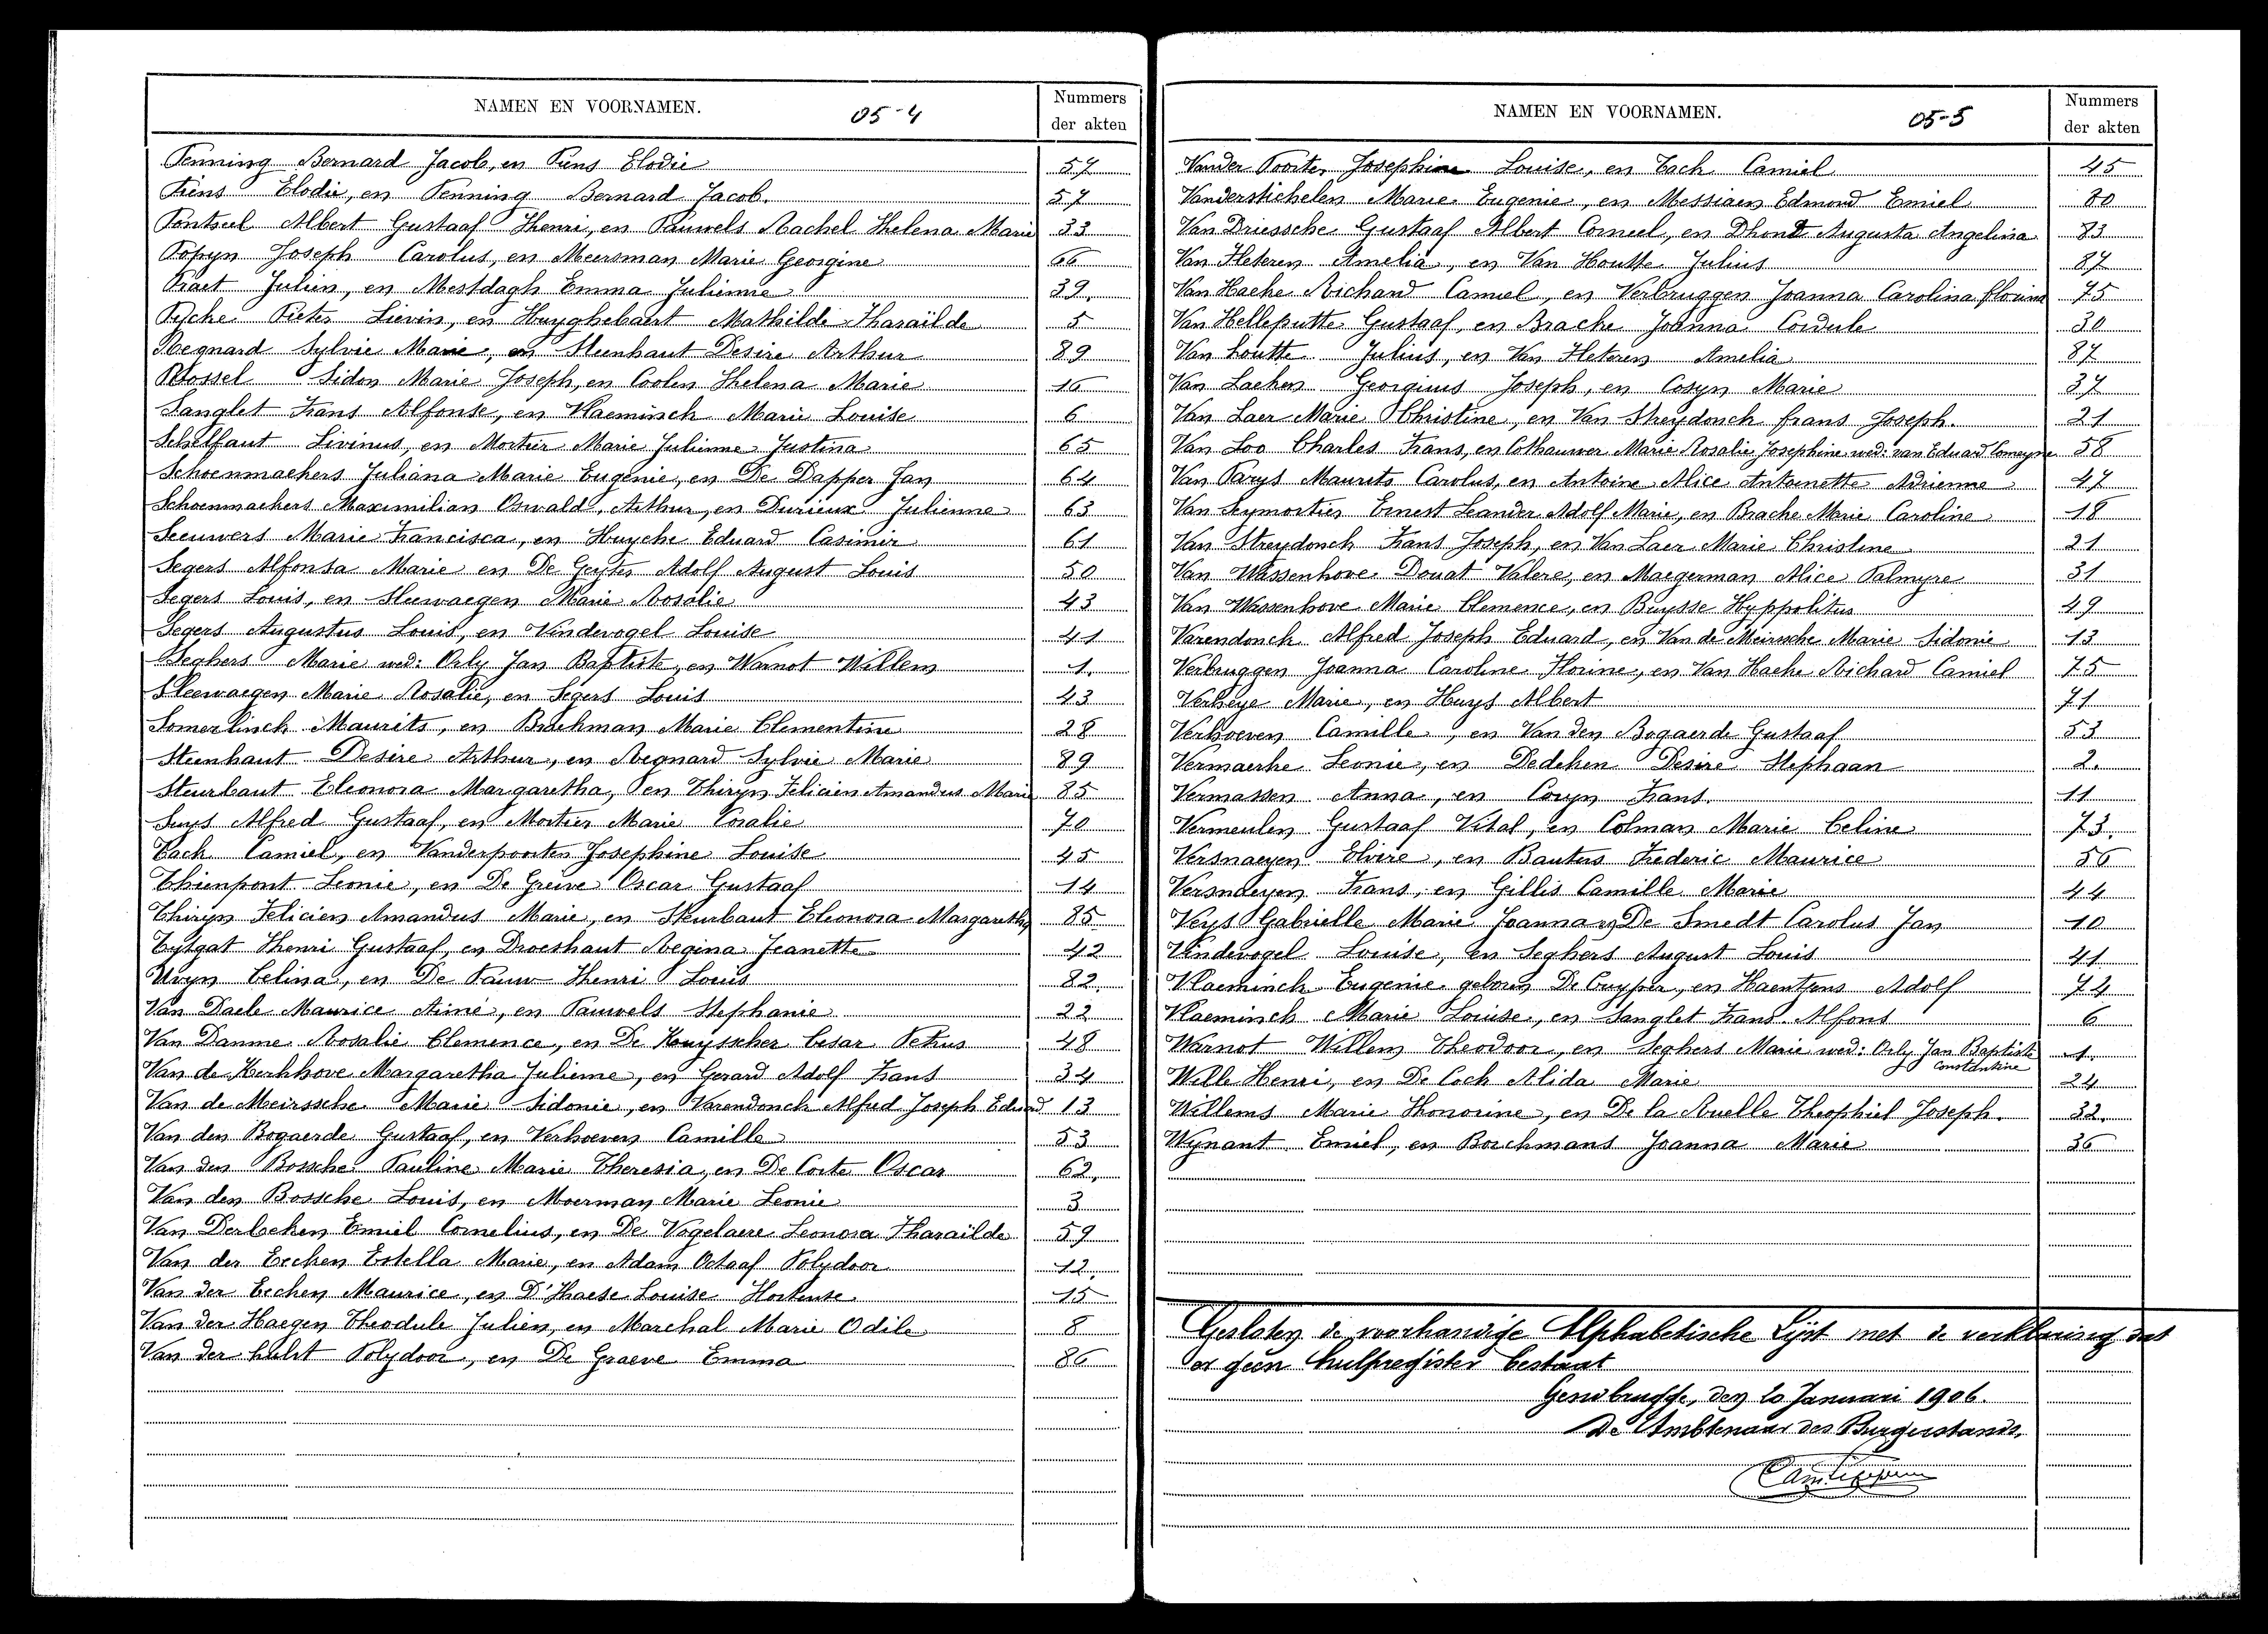 NAMEN EN VOORNAMEN. 05-4 Nummers der akten
Penning Bernard Jacob, en Piens Elodie 57
Piens Elodie, en Penning Bernard Jacob. 57
Pontseel Albert Gustaaf Henri, en Pauwels Rachel Helena Marie 33
Popyn Joseph Carolus, en Meersman Marie Georgine 66
Praet Julien, en Mestdagh Emma Julienne 39.
Pycke Pieter Lievin, en Huyghebaert Mathilde Tharaïlde 5
Regnard Sylvie Marie, en Steenhaut Desire Arthur 89
Rossel Sidon Marie Joseph, en Coolen Helena Marie 16
Sanglet Frans Alfonse, en Vlaeminck Marie Louise 6
Schelfaut Livinus, en Mortier Marie Julienne Justina 65
Schoenmaekers Juliana Marie Eugenie, en De Dapper Jan 64
Schoenmaekers Maximilian Oswald, Arthur, en Durieux Julienne 63
Seeuwers Marie Francisca, en Huycke Eduard Casimir 61
Segers Alfonsa Marie en De Geyter Adolf August Louis 50
Segers Louis, en Sleewaegen Marie Rosalie 43
Segers Augustus Louis, en Vindevogel Louise 41
Seghers Marie wed: Orly Jan Baptiste, en Warnot Willem 1.
Sleewaegen Marie Rosalie, en Segers Louis 43
Somerlinck Maurits, en Brackman Marie Clementine 28
Steenhaut Desire Arthur, en Regnard Sylvie Marie 89
Steurbaut Eleonora Margaretha, en Thiryn Felicien Amandus Marie 85
Suys Alfred Gustaaf, en Mortier Marie Coralie 70
Tack Camiel, en Vanderpoorten Josephine Louise 45
Thienpont Leonie, en De Greve Oscar Gustaaf 14
Thiryn Felicien Amandus Marie, en Steurbaut Eleonora Margaretha 85
Tytgat Henri Gustaaf, en Droeshaut Regina Jeanette 42
Uvyn Celina, en De Pauw Henri Louis 82.
Van Daele Maurice Aimé, en Pauwels Stephanie 22
Van Damme Rosalie Clemence, en De Kuyscher Cesar Petrus 48
Van de Kerkhove Margaretha Julienne, en Gerard Adolf Frans 34
Van de Meirssche Marie Sidonie, en Varendonck Alfred Joseph Eduard 13
Van den Bogaerde Gustaaf, en Verhoeven Camille 53
Van den Bossche Pauline Marie Theresia, en De Corte Oscar 62,
Van den Bossche Louis, en Moerman Marie Leonie 3
Van Derbeken Emiel Cornelius, en De Vogelaere Leonora Tharaïlde 59
Van der Eecken Estella Marie, en Adam Octaaf Polydoor 12.
Van der Eecken Maurice, en D'Haese Louise Hortense 15
Van der Haegen Theodule Julien, en Marchal Marie Odile 8
Van der hulst Polydoor, en De Graeve Emma 86
NAMEN EN VOORNAMEN. 05-5 Nummers der akten
Vander Poorten Josephine Louise, en Tack Camiel 45
Vanderstichelen Marie Eugenie, en Messiaen Edmond Emiel 80
Van Driessche Gustaaf Albert Corneel, en Dhondt Augusta Angelina 83
Van Heteren Amelia, en Van Houtte Julius 87
Van Haeke Richard Camiel, en Verbruggen Joanna Carolina florine 75
Van Helleputte Gustaaf, en Bracke Joanna Cordule 30
Van houtte Julius, en Van Heteren Amelia 87
Van Laeken Georgius Joseph, en Cosyn Marie 37
Van Laer Marie Christine, en Van Streydonck frans Joseph. 21
Van Loo Charles Frans, en Cothauwer Marie Rosalie Josephine wed: van Eduard Comeyne 58
Van Parys Maurits Carolus, en Antoine Alice Antoinette Adrienne 47
Van Seymortier Ernest Leander Adolf Marie, en Bracke Marie Caroline 18
Van Streydonck Frans Joseph, en Van Laer Marie Christine 21
Van Wassenhove Donat Valere, en Maegerman Alice Palmyre 31
Van Wassenhove Marie Clemence, en Buysse Hyppolitus 49
Varendonck Alfred Joseph Eduard, en Van de Meirssche Marie Sidonie 13
Verbruggen Joanna Caroline Florine, en Van Haeke Richard Camiel 75
Verheye Marie, en Huys Albert 71
Verhoeven Camille, en Van den Bogaerde Gustaaf 53
Vermaerke Leonie, en Dedeken Desiré Stephaan 2.
Vermassen Anna, en Coryn Frans. 11
Vermeulen Gustaaf Vital, en Colman Marie Celine 73.
Versnaeyen Elvire, en Bauters Frederic Maurice 56
Versnaeyen Frans, en Gillis Camille Marie 44
Veys Gabrielle Marie Joanna en De Smedt Carolus Jan 10
Vindevogel Louise, en Seghers August Louis 41.
Vlaeminck Eugenie geboren De Cuyper, en Haentjens Adolf 74
Vlaeminck Marie Louise, en Sanglet Frans Alfons 6
Warnot Willem Theodoor, en Seghers Marie wed: Orly Jan Baptiste 1.
Constantine
Wille Henri, en De Cock Alida Marie 24
Willems Marie Honorine, en De la Ruelle Theophiel Joseph. 32.
Wynant Emiel, en Borchmans Joanna Marie 36
Gesloten de voorhandige Alphabetische Lijst met de verklaring dat
er geen hulpregister bestaat
Gendbrugge, den 20 Januari 1906.
De Ambtenaar des Burgerstands,